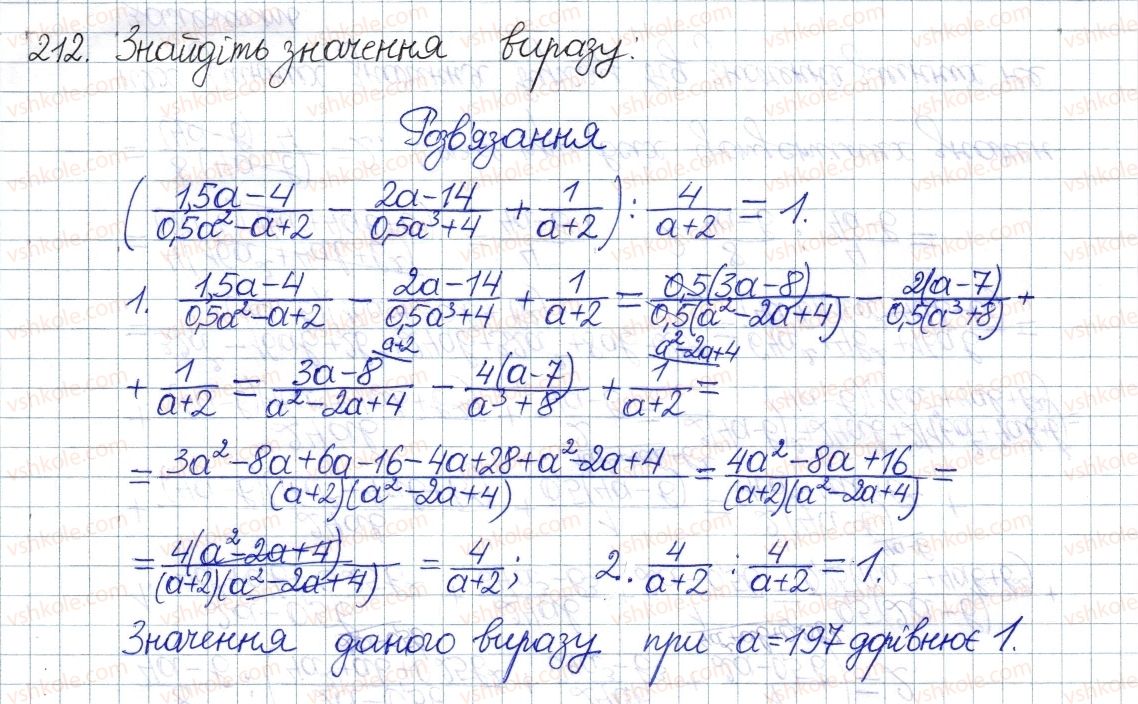 212. Знайдіть значення виразу:
Розв'язання
( (1,5a-4)/(0,5a²-a+2) - (2a-14)/(0,5a³+4) + 1/(a+2) ) : 4/(a+2) = 1.
1. (1,5a-4)/(0,5a²-a+2) - (2a-14)/(0,5a³+4) + 1/(a+2) = 0,5(3a-8)/0,5(a²-2a+4) - 2(a-7)/0,5(a³+8) +
+ 1/(a+2) = (3a-8)/(a²-2a+4) ^(a+2) - 4(a-7)/(a³+8) + 1/(a+2) ^(a²-2a+4) =
= (3a²-8a+6a-16-4a+28+a²-2a+4)/((a+2)(a²-2a+4)) = (4a²-8a+16)/((a+2)(a²-2a+4)) =
= 4(a²-2a+4)/((a+2)(a²-2a+4)) = 4/(a+2); 2. 4/(a+2) : 4/(a+2) = 1.
Значення даного виразу при a=197 дорівнює 1.